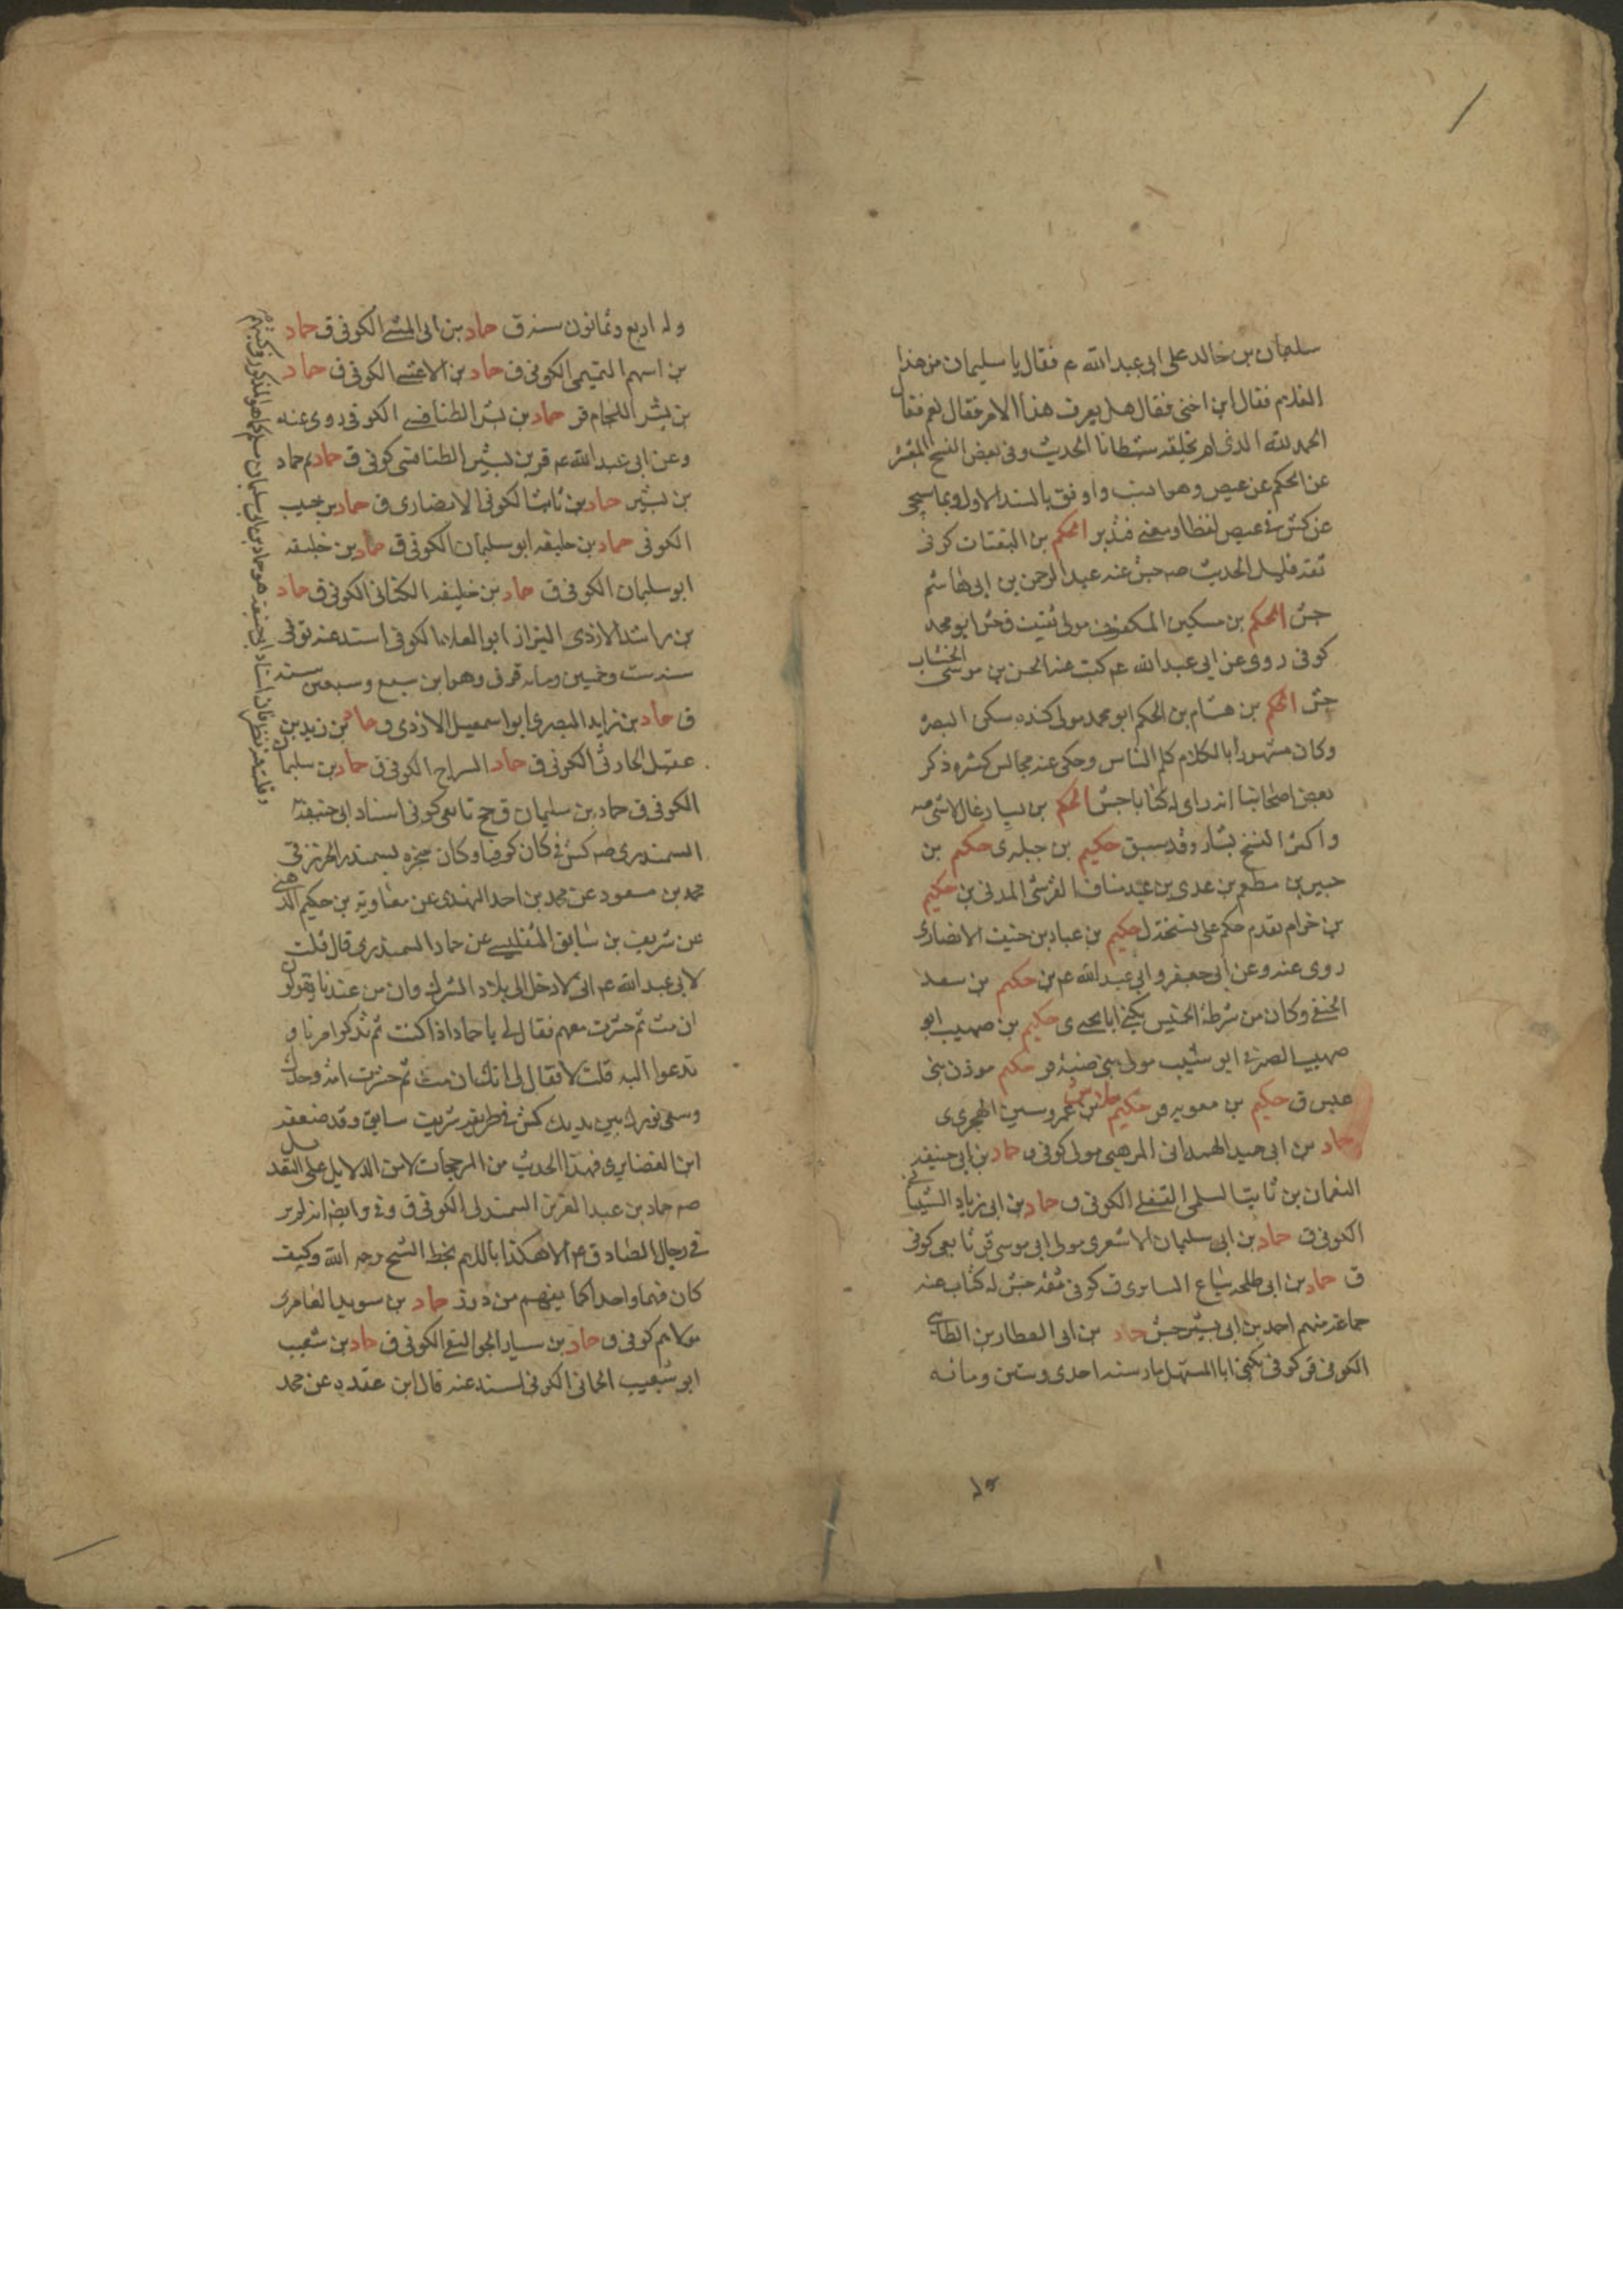 سليمان بن خالد على ابى عبد الله عم فقال يا سليمان من هذا
الغلام فقال ابن اختى فقال هل يعرف هذا الامر فقال نعم فقال
الحمد لله الذى لم يخلقه شيطانا الحديث وفى بعض النسخ
عن الحكم عن عيص وهو اوفق بالسند الاول وبما سيجى
عن كش فى عيص لفظا ومعنى فتدبر الحكم بن القتات كوفى
ثقه قليل الحديث صه جش عنه عبد الرحمن بن ابى هاشم
جش الحكم بن مسكين المكفوف مولى ثقيف جش ابو محمد
كوفى روى عن ابى عبد الله عم كتب عنه الحسن بن موسى الخشاب
جش الحكم بن هشام بن الحكم ابو محمد مولى كنده سكن البصره
وكان مشهورا بالكلام كلم الناس وحكى عنه مجالس كثيره ذكر
بعض اصحابنا انه راى له كتابا جش الحكم بن يسار غال لا شى صه
واكثر النسخ بشار وقد سبق حكيم بن جبله ى حكيم بن
جبير بن مطعم بن عدى بن عبد مناف القرشى المدنى ين حكيم
بن حزام تقدم حكم على نسخة ل حكيم بن عباد بن حنيف الانصارى
روى عنه وعن ابى جعفر وابى عبد الله عم ين حكيم بن سعد
الحنفى وكان من شرطة الخميس يكنى ابا يحيى ى حكيم بن صهيب ابو
صهيب الصيرفى ابو شبيب مولى بنى ضبه قر حكيم موذن بنى
عبس ق حكيم بن معويه قر حكيم بن عمرو سين الهجرى ى
حماد بن ابى حميد الهمدانى المرهبى مولى كوفى ق حماد بن ابى حنيفه
النعمان بن ثابت السلمى الكوفى ق حماد بن ابى زياد الشيبانى
الكوفى ق حماد بن ابى سليمان الاشعرى مولى ابى موسى قر تابعى كوفى
ق حماد بن ابى طلحه بياع السابرى ق كوفى ثقه جش له كتاب عنه
جماعه منهم احمد بن ابى بشير جش حماد بن ابى العطارد الطائى
الكوفى قر كوفى يكنى ابا المستهل مات سنه احدى وستين ومائه
وله اربع وثمانون سنه ق حماد بن ابى المثنى الكوفى ق حماد
بن اسهم التميمى الكوفى ق حماد بن الاعشى الكوفى ق حماد
بن بشر اللحام قر حماد بن بشر الطنافسى الكوفى روى عنه
وعن ابى عبد الله عم قر بن بشير الطنافسى كوفى ق حماد
بن بشير حماد بن ثابت الكوفى الانصارى ق حماد بن حبيب
الكوفى حماد بن خليفه ابو سليمان الكوفى ق حماد بن خليفه
ابو سليمان الكوفى ق حماد بن خليفه الكنانى الكوفى ق حماد
بن راشد الازدى البزاز ابو العلاء الكوفى اسند عنه توفى
سنه ست وخمسين ومائه قر ق وهو ابن سبع وسبعين سنه
ق حماد بن زايد البصرى ابو اسمعيل الازدى ق حماد بن زيد بن
عقيل الحارثى الكوفى ق حماد السراج الكوفى ق حماد بن سليمان
الكوفى ق حماد بن سليمان ق ج تابعى كوفى استاد ابى حنيفه
السمندرى صه كش فى كان كوفيا وكان متجره بسمندر الخزر ق
محمد بن مسعود عن محمد بن احمد النهدى عن معاويه بن حكيم الدهنى
عن شريف بن سابق التفليسى عن حماد السمندرى قال قلت
لابى عبد الله عم انى لادخل الى بلاد الشرك وان من عندنا يقولون
ان مت ثم حشرت معهم فقال لى يا حماد اذا كنت ثم تذكر امرنا و
تدعوا اليه قلت لا فقال لى انك ان مت ثم حشرت امه وحدك
وسعى نورك بين يديك كش فى طريقه شريف سابق وقد ضعفه
ابن الغضايرى فهذا الحديث من المرجحات لا من الدلايل على التعديل
صه حماد بن عبد العزيز السمندلى الكوفى ق
فى رجال الصادق عم الا هكذا باللام بخط الشيخ رحمه الله وكيف
كان فهما واحد كما يفهم من حماد بن سويد العامرى
مولاهم كوفى ق حماد بن سيار الكوفى ق حماد بن شعيب
ابو شعيب الحمانى الكوفى اسند عنه قال ابن عقده عن محمد